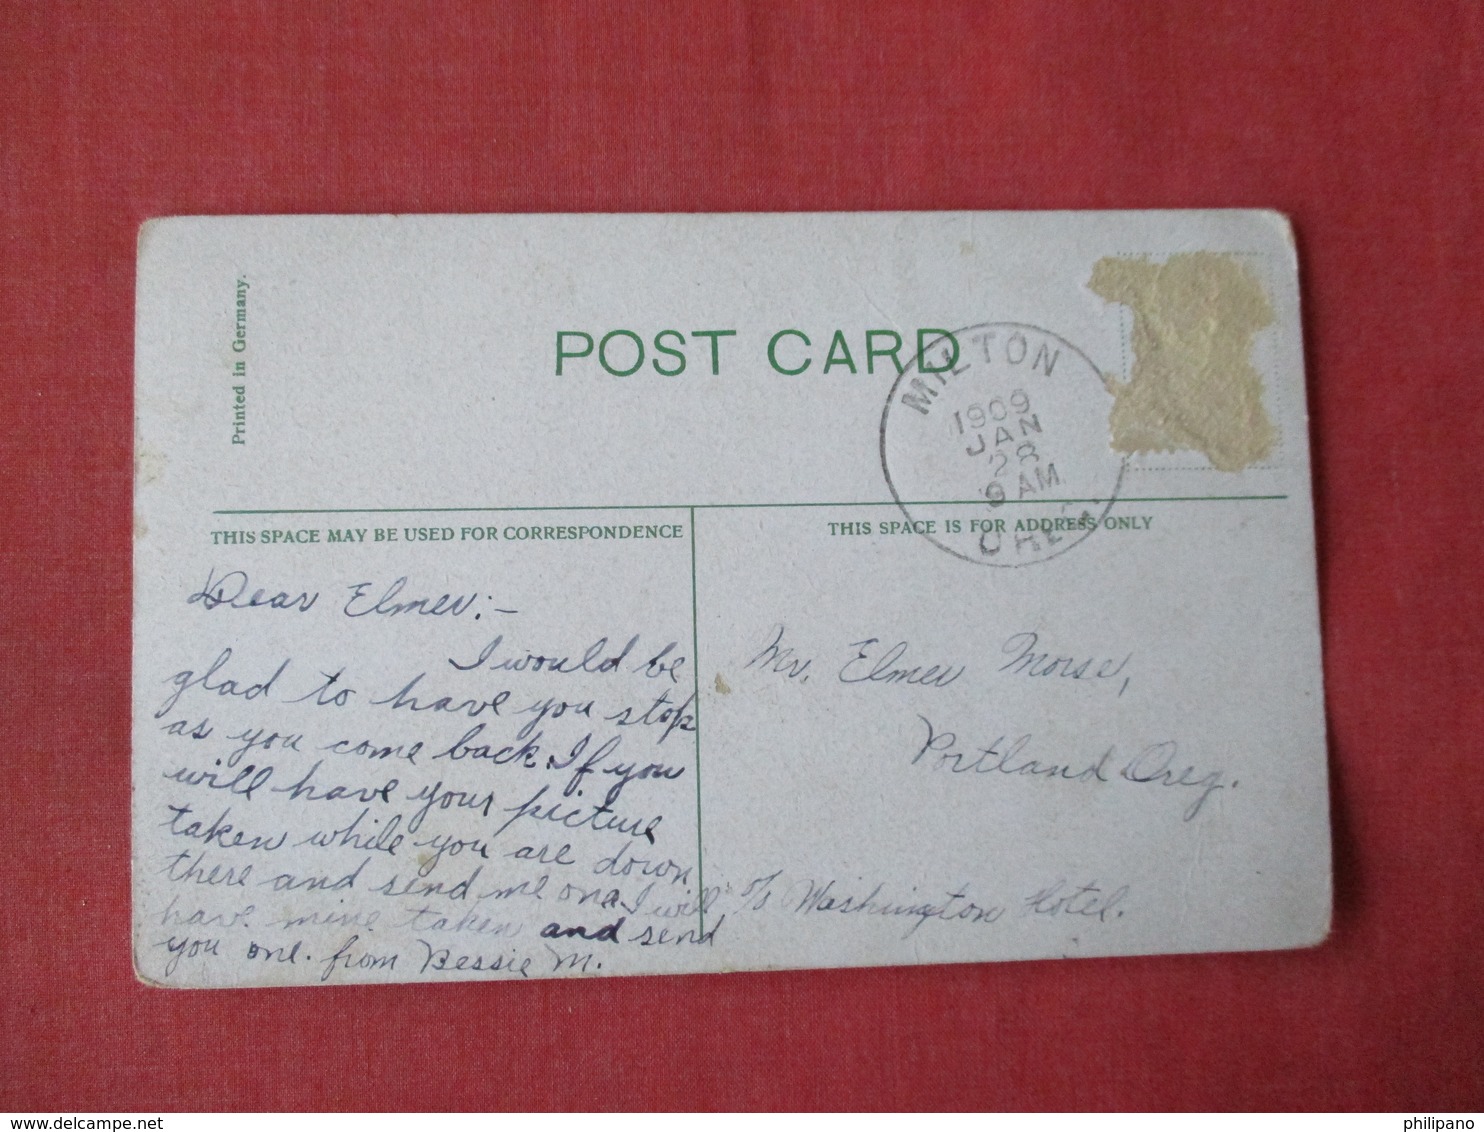 Printed in Germany.
POST CARD
MILTON
1909
JAN
28
9 AM.
OREG.
THIS SPACE MAY BE USED FOR CORRESPONDENCE
THIS SPACE IS FOR ADDRESS ONLY
Dear Elmer:-
I would be
glad to have you stop
as you come back. If you
will have your picture
taken while you are down
there and send me one I will
have mine taken and send
you one. from Bessie M.
Mr. Elmer Morse,
Portland Oreg.
c/o Washington Hotel.
delcampe.net
philipano